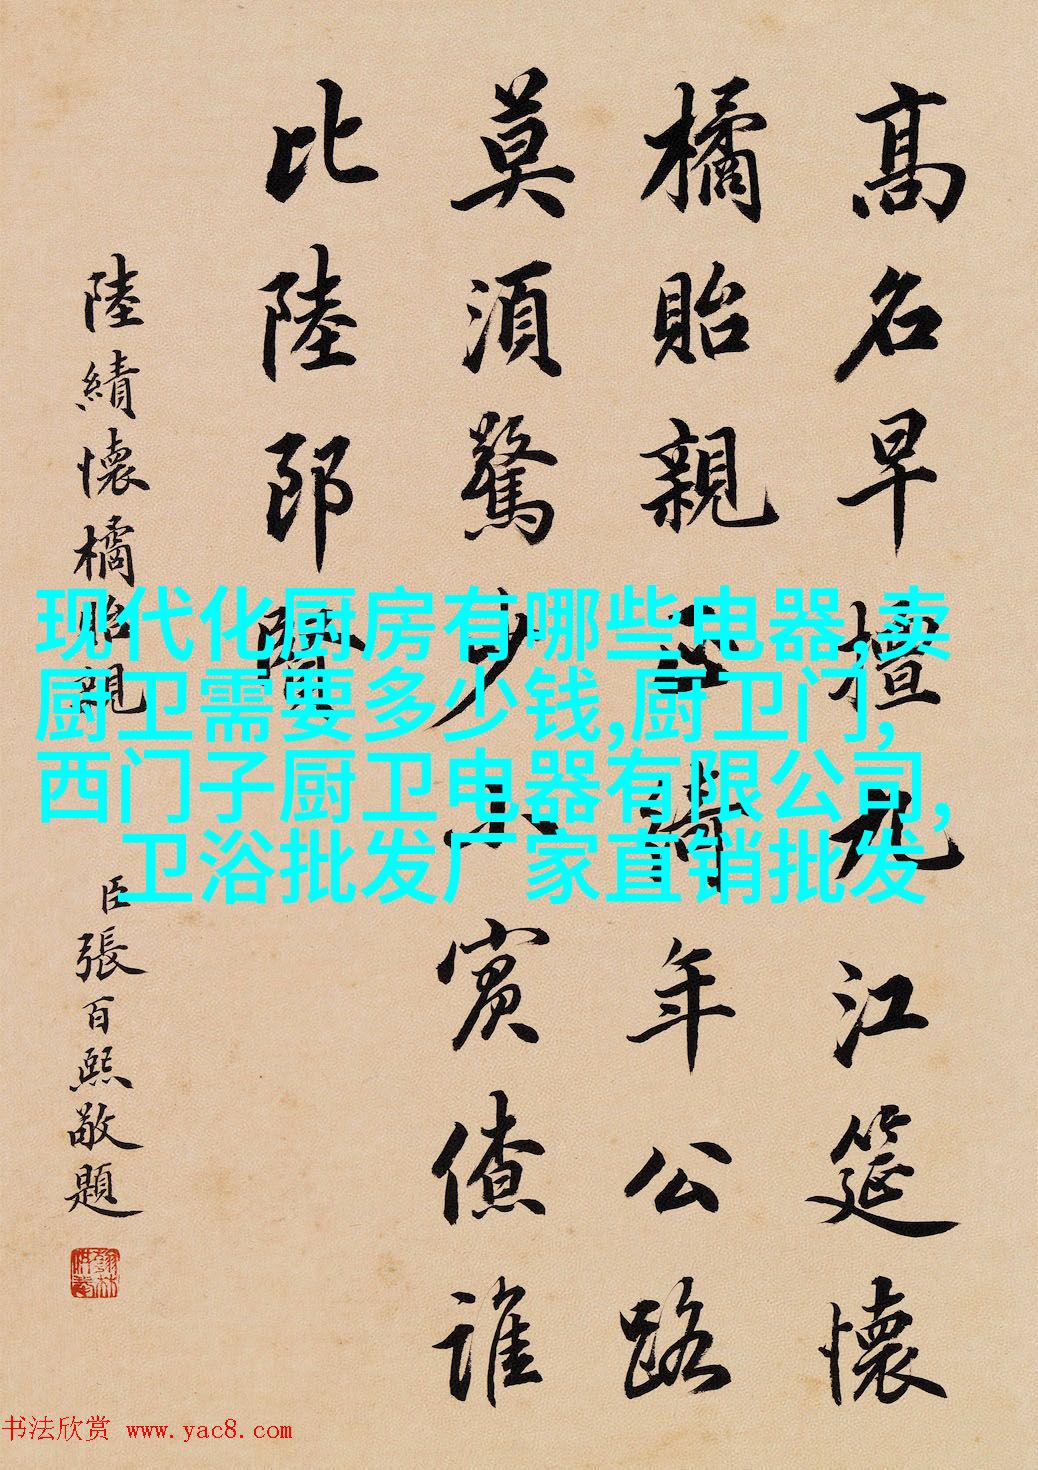 高名早擅九江筵懷
橘貽親正綺年公路
莫須驚少小賓僚誰
比陸郎賢
陸績懷橘貽親
臣張百熙敬題
现代化厨房有哪些电器,卖
厨卫需要多少钱,厨卫门,
西门子厨卫电器有限公司,
卫浴批发厂家直销批发
书法欣赏 www.yac8.com